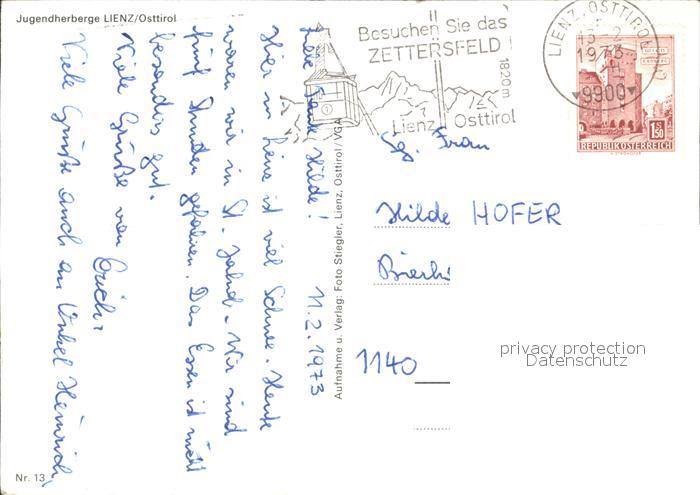 Jugendherberge LIENZ/Osttirol
Liebe Tante Hilde! 11.2.1973
Hier in Lienz ist viel Schnee. Heute
waren wir in St. Jakob. Wir sind
fünf Stunden gefahren. Das Essen ist nicht
besonders gut.
Viele Grüße von
Erich.
Viele Grüße auch an Onkel Heinrich.
Nr. 13
Aufnahme u. Verlag: Foto Stiegler, Lienz, Osttirol / VGA
Besuchen Sie das
ZETTERSFELD
1820m
Lienz Osttirol
LIENZ, OSTTIROL
13.-2.
1973
9900
1.50
REPUBLIK ÖSTERREICH
Frau
Hilde HOFER
1140
privacy protection
Datenschutz